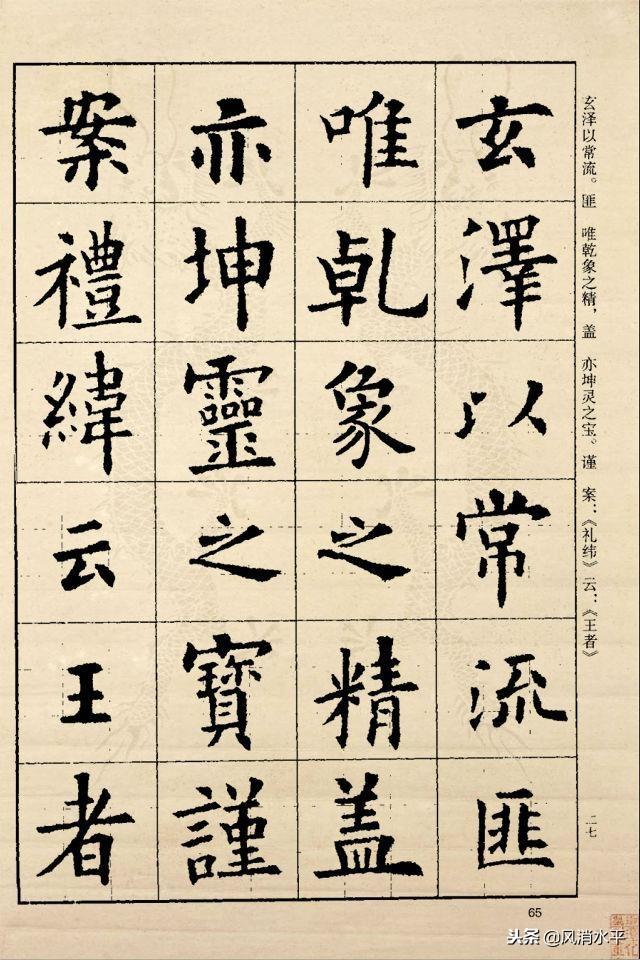 玄澤以常流匪
唯乹象之精盖
亦坤靈之寶謹
案禮緯云王者
玄泽以常流。匪 唯乾象之精，盖 亦坤灵之宝。谨 案：《礼纬》云：《王者》
二七
65
头条 @风消水平